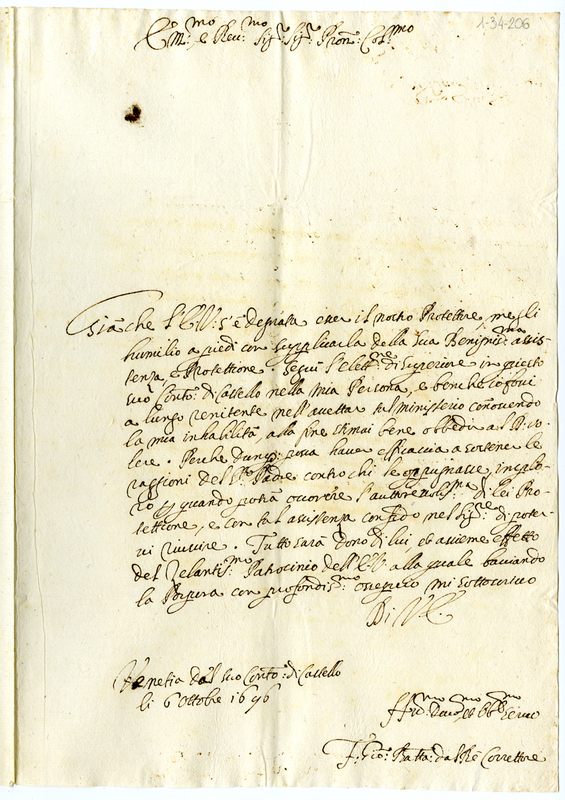 1-34-206
Em.mo e Rev.mo Sig.r Sig.r Pron: Col.mo
Già che l'E.V: s'è degnata esser il nostro Protettore, me gli
humilio a piedi con supplicarla della Sua Benignis.ma assis-
tenza, e Protettione. Seguì l'elett.ne di Superiore in questo
suo Conto: di Castello nella mia Persona, e benche io fossi
a lungo renitente nell'accettar tal ministerio conoscendo
la mia inhabilità, alla fine stimai bene obbedir al Di vo-
lere. Perche dunq; possa haver efficaccia a sostener le
raggioni del S. Padre contro chi le oppugnasse, implo-
ro q quando potrà occorrere l'authoreuolis.ma di lei Pro-
tettione, e con tal assistenza confido nel Sig.re di poter-
vi riuscire. Tutto sarà dono di lui et assieme effetto
del Zelantis.mo Patrocinio dell'E.V. alla quale bacciando
la Porpora con profondis.mo ossequio mi sottoscrivo
Di V.E.
Venetia dal suo Conto: di Castello
li 6 Ottobre 1696
F. Gio: Batta: da Correttore